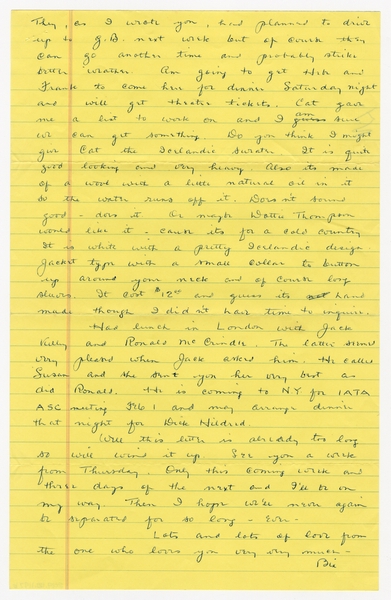 They, as I wrote you, had planned to drive
up to G.B. next week but of course they
can go another time and probably strike
better weather. Am going to get Herb and
Frank to come here for dinner Saturday night
and will get theater tickets. Cat gave
me a list to work on and I am sure
we can get something. Do you think I might
give Cat the Icelandic sweater. It is quite
good looking and very heavy. Also its made
of a wool with a little natural oil in it
so the water runs off it. Doesn't sound
good - does it. Or maybe Dottie Thompson
would like it - cause its for a cold country
It is white with a pretty Icelandic design
Jacket type with a small collar to button
up around your neck and of course long
sleeves. It cost $12 00 and guess its hand
made though I didn't have time to inquire.
Had lunch in London with Jack
Kelly and Ronald McCrindle. The latter seemed
very pleased when Jack asked him. He called
Susan and she sent you her very best as
did Ronald. He is coming to NY for IATA
ASC meeting Feb 1 and may arrange dinner
that night for Dick Mildred.
Well this letter is already too long
so will wind it up. See you a week
from Thursday. Only this coming week and
three days of the next and I'll be on
my way. Then I hope we'll never again
be separated for so long - Ever -
Lots and lots of love from
the one who loves you very very much -
Bii